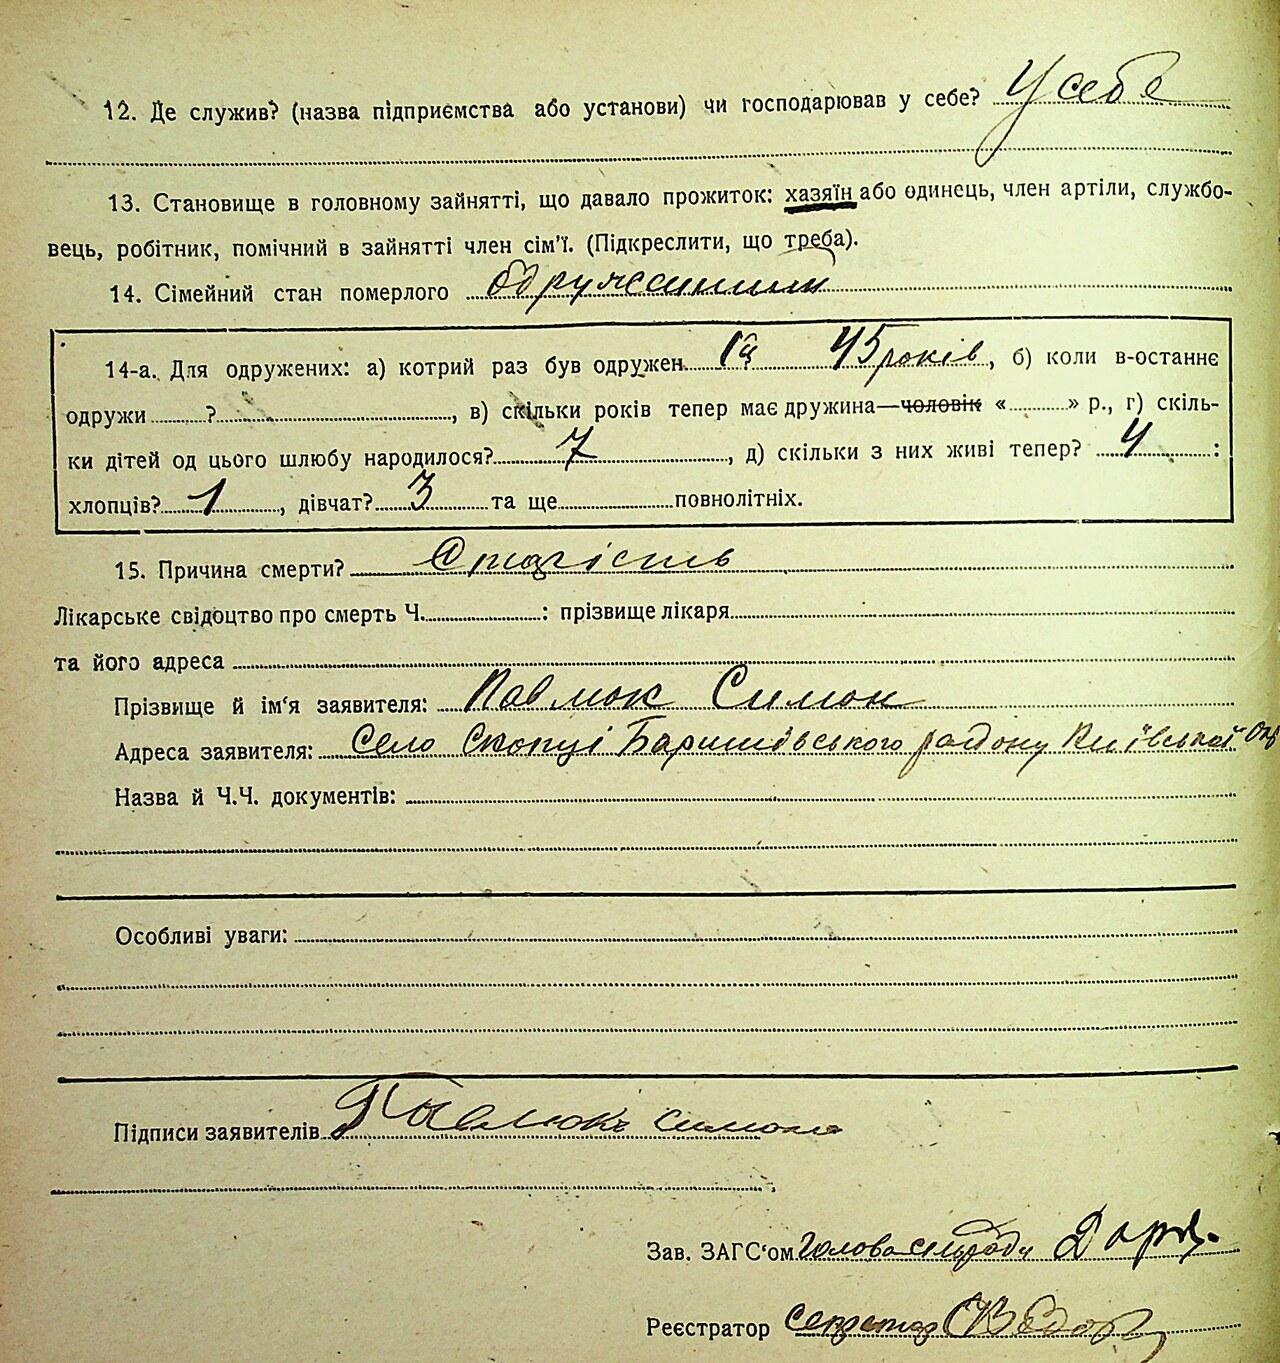 12. Де служив? (назва підприємства або установи) чи господарював у себе? У себе
13. Становище в головному зайнятті, що давало прожиток: хазяїн або одинець, член артіли, службо-
вець, робітник, помічний в зайнятті член сім'ї. (Підкреслити, що треба).
14. Сімейний стан померлого одруженим
14-а. Для одружених: а) котрий раз був одружен 45 років, б) коли в-останнє
одружи ? , в) скільки років тепер має дружина—чоловік « » р., г) скіль-
ки дітей од цього шлюбу народилося? 7 , д) скільки з них живі тепер? 4 :
хлопців? 1 , дівчат? 3 та ще повнолітніх.
15. Причина смерти? Старість
Лікарське свідоцтво про смерть Ч. : прізвище лікаря
та його адреса
Прізвище й ім'я заявителя: Павлюк Симон
Адреса заявителя: Село Скопці Баришівського району Київської Обл
Назва й Ч.Ч. документів:
Особливі уваги:
Підписи заявителів Павлюк Симон
Зав. ЗАГС'ом Голова сільради
Реєстратор секретар